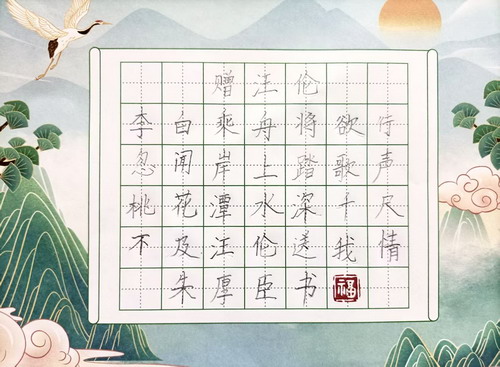 赠汪伦
李白乘舟将欲行
忽闻岸上踏歌声
桃花潭水深千尺
不及汪伦送我情
朱厚臣书
福